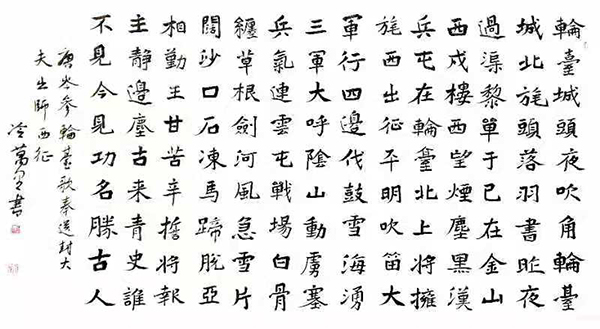 輪臺城頭夜吹角輪臺
城北旄頭落羽書昨夜
過渠黎單于已在金山
西戍樓西望煙塵黑漢
兵屯在輪臺北上將擁
旄西出征平明吹笛大
軍行四邊伐鼓雪海湧
三軍大呼陰山動虜塞
兵氣連雲屯戰場白骨
纏草根劍河風急雪片
闊沙口石凍馬蹄脫亞
相勤王甘苦辛誓將報
主靜邊塵古来青史誰
不見今見功名勝古人
唐岑參輪臺歌奉送封大
夫出師西征
冷萬里書